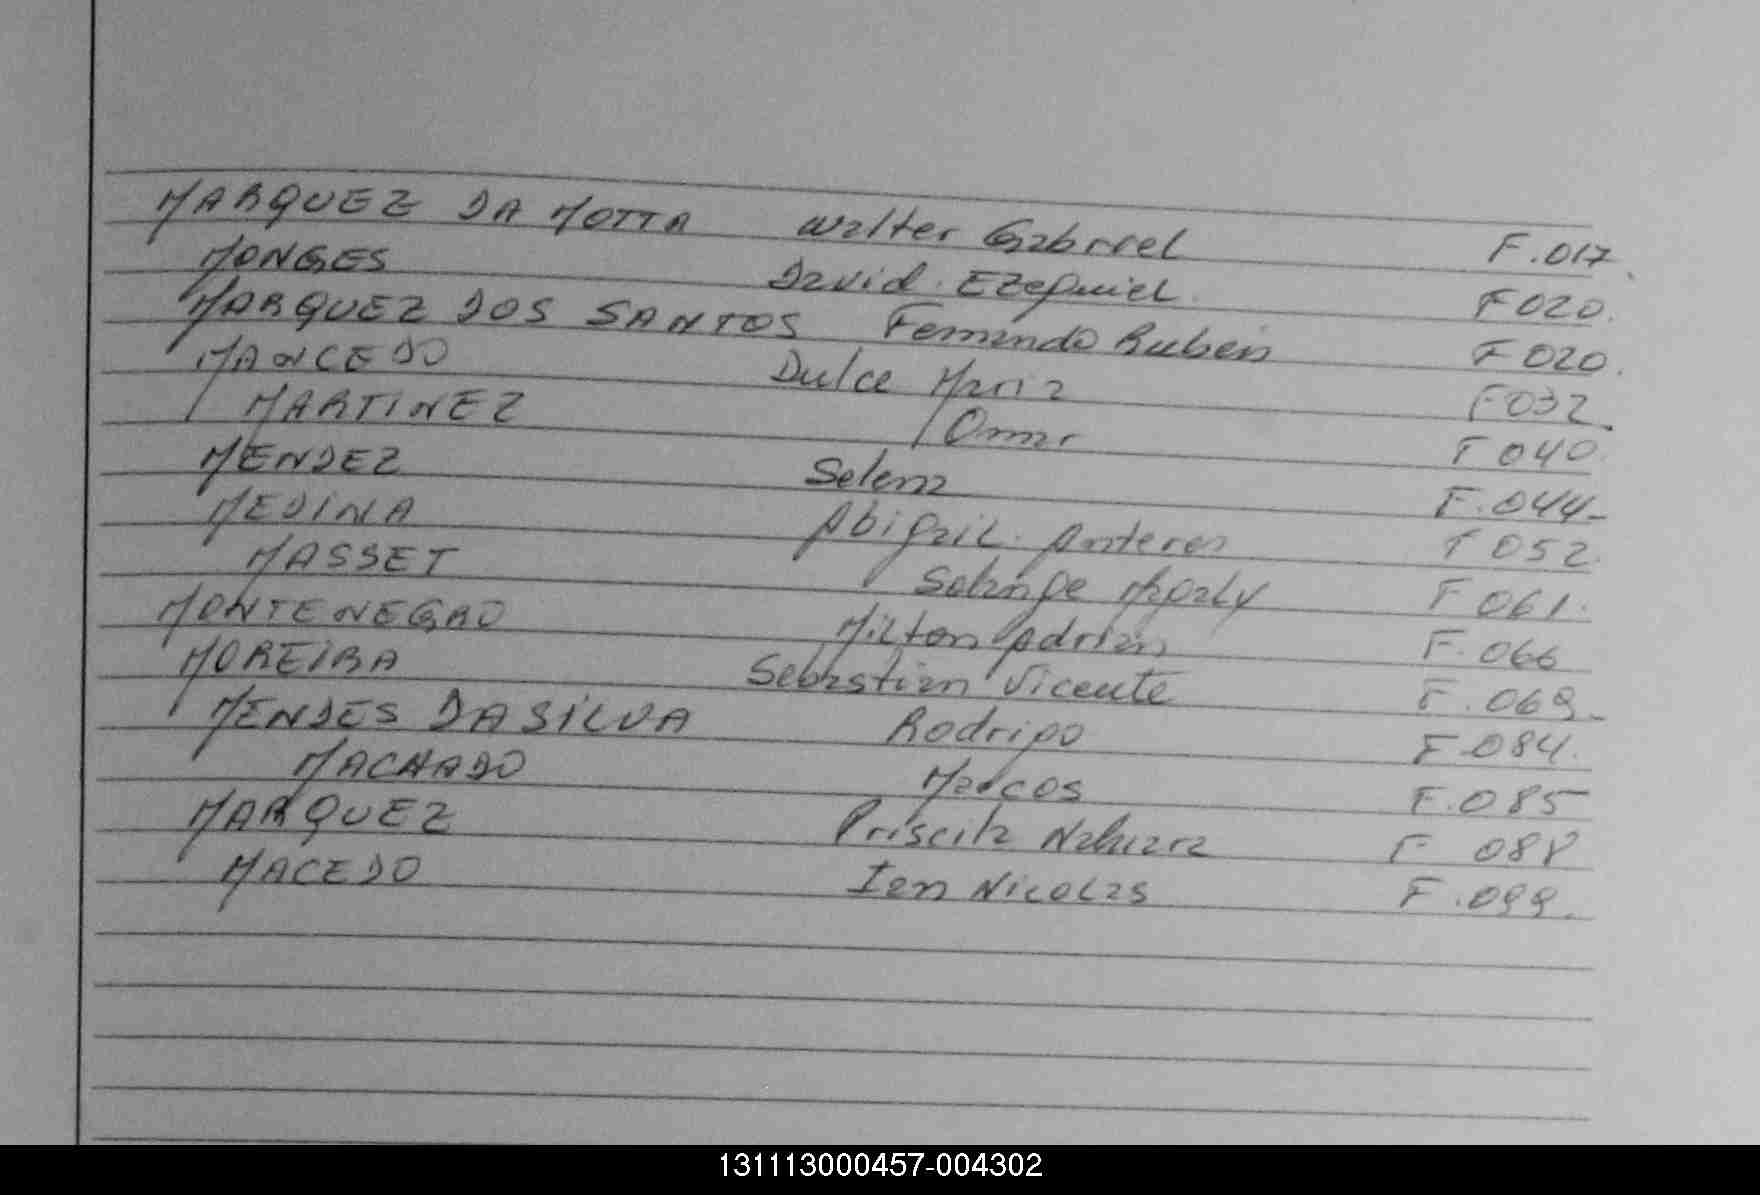 MARQUEZ DA MOTTA Walter Gabriel F.017.
MONGES David. Ezequiel. F020.
MARQUEZ DOS SANTOS Fernando Ruben F020.
MANCEDO Dulce Maria F032.
MARTINEZ Omar F040.
MENDEZ Selena F.044-
MEDINA Abigail. Anteres F052.
MASSET Solange Magaly F061.
MONTENEGRO Milton Adrian F.066
MOREIRA Sebastian Vicente F.069-
MENDES DA SILVA Rodrigo F.084.
MACHADO Marcos F.085
MARQUEZ Priscila Nahiara F 088
MACEDO Ian Nicolas F.099.
131113000457-004302